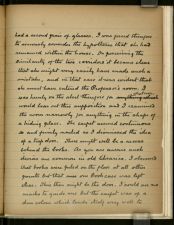 had a second pair of glasses. I was forced therefore
to seriously consider the hypothesis that she had
remained within the house. On perceiving the
similarity of the two corridors it became clear
that she might very easily have made such a
mistake, and in that case it was evident that
she must have entered the Professor's room. I
was keenly on the alert therefore for anything which
would bear out this supposition and I examined
the room narrowly for anything in the shape of
a hiding place. The carpet seemed continuous
and firmly nailed so I dismissed the idea
of a trap door. There might well be a recess
behind the books. As you are aware such
devices are common in old libraries. I observed
that books were piled on the floor at all other
points but that one bookcase was left
clear. This then might be the door. I could see no
marks to guide me but the carpet was of a
dun colour which lends itself very well to